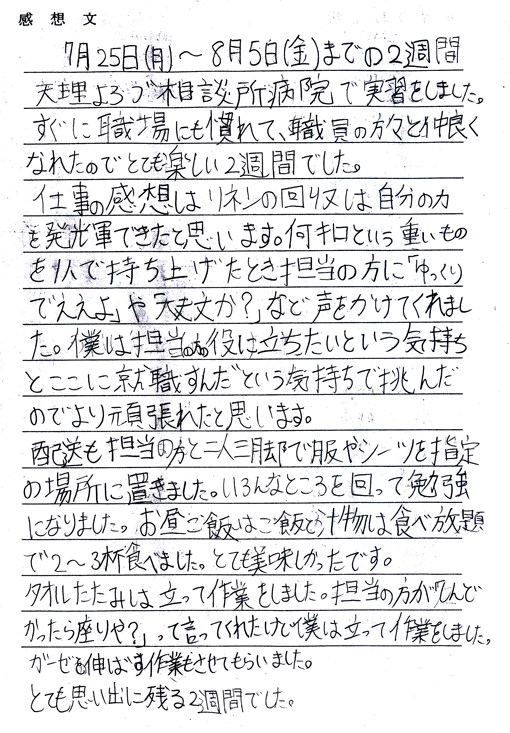 感想文
7月25日(月)～8月5日(金)までの2週間
天理よろづ相談所病院で実習をしました。
すぐに職場にも慣れて、職員の方々と仲良く
なれたのでとても楽しい2週間でした。
仕事の感想はリネンの回収は自分の力
を発揮できたと思います。何キロという重いもの
を1人で持ち上げたとき担当の方に「ゆっくり
でええよ」や「大丈夫か?」など声をかけてくれまし
た。僕は担当の方の役は立ちたいという気持ち
とここに就職すんだという気持ちで挑んだ
のでより頑張れたと思います。
配送も担当の方と二人三脚で服やシーツを指定
の場所に置きました。いろんなところを回って勉強
になりました。お昼ご飯はご飯と汁物は食べ放題
で2～3杯食べました。とても美味しかったです。
タオルたたみは立って作業をしました。担当の方が「しんど
かったら座りや?」って言ってくれたけど僕は立って作業をしました。
ガーゼを伸ばす作業もさせてもらいました。
とても思い出に残る2週間でした。